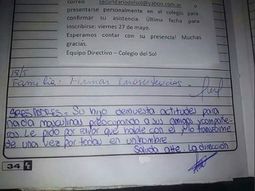 correo secundariodelsol@yahoo.com.ar
presentarse personalmente en el colegio para
confirmar su asistencia. Última fecha para
inscribirse: viernes 27 de mayo.
Esperamos contar con su presencia! Muchas
gracias.
Equipo Directivo - Colegio del Sol
18/5
Familia:
SRES PADRES: Su hijo demuestra actitudes para
nada masculinas preocupando a sus amigos y compañe-
ros. Le pido por favor que hable con el p/q transforme
de una vez por todas en un hombre.
Saluda atte. La dirección
34